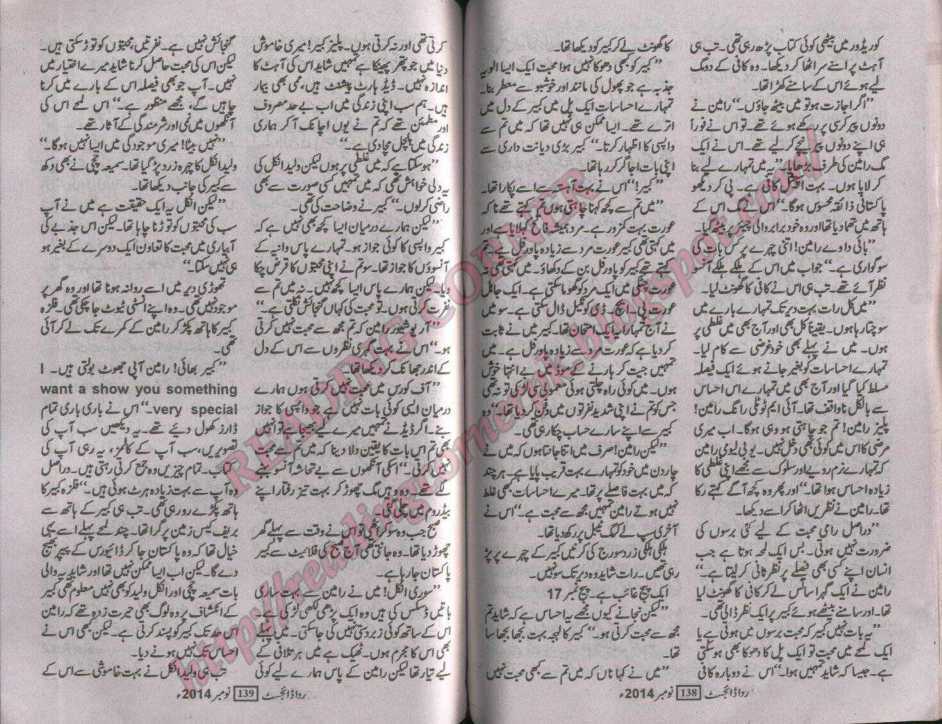 کوریڈور میں بیٹھی کوئی کتاب پڑھ رہی تھی۔ تب ہی
آہٹ پر اسے سر اٹھا کر دیکھا۔ وہ کافی کے دو مگ
لیے ہوئے اس کے سامنے کھڑا تھا۔
”اگر اجازت ہو تو میں بیٹھ جاؤں۔“ رامین نے
دونوں پیر کرسی پر رکھے ہوئے تھے۔ تو اس نے فوراً
ہی اپنے دونوں پیر نیچے کر لیے تھے۔ اس نے ایک
مگ رامین کی طرف بڑھایا۔ ”یہ میں تمہارے لیے بنا
کر لایا ہوں۔ بہت اسپیشل کافی ہے۔ پی کر دیکھو
پاکستانی ذائقہ محسوس ہوگا۔“ اس نے مگ اس کے
ہاتھ میں تھما دیا تھا اور وہ خود برابر والی چیئر پر بیٹھ گیا۔
”بائی دا وے رامین! اتنی چہرے پر کس بات کی
سوگواری ہے۔“ جواب میں اس کے ہلکے ہلکے آنسو
نظر آئے تھے۔ تب ہی اس نے کافی کا گھونٹ لیا۔
”میں کل رات بہت دیر تک تمہارے بارے میں
سوچتا رہا ہوں۔ یقیناً کل بھی اور آج بھی میں غلطی پر
ہوں۔ میں نے پہلے بھی خود غرضی سے کام لیا۔
تمہارے احساسات کو بغیر جانے ہوئے ایک فیصلہ
مسلط کیا گیا اور آج بھی میں تمہارے اس احساس
سے بالکل ناواقف تھا۔ آئی ایم ٹوٹلی رانگ رامین!
پلیز رامین! تم جو چاہتی ہو وہی ہوگا۔ اب میری
مرضی کا اس میں کوئی بھی دخل نہیں۔ یو نی لیوی رامین
کہ تمہارے نرم رویے اور سلوک سے مجھے اپنی غلطی کا
زیادہ احساس ہوا تھا۔“ اور پھر وہ کچھ آگے کہنے رکا
تھا۔ رامین نے نظریں اٹھا کر اسے دیکھا۔
”دراصل رامی محبت کے لیے کئی برسوں کی
ضرورت نہیں ہوتی۔ بس ایک لمحہ ہوتا ہے جب
انسان اپنے کسی بھی فیصلے پر نظر ثانی کر لیتا ہے۔“
رامین نے ایک گہرا سانس لے کر کافی کا گھونٹ لیا
تھا۔ اور سامنے بیٹھے ہوئے کبیر پر ایک نظر ڈالی تھی۔
”یہ بات نہیں کبیر کہ محبت برسوں میں ہوتی ہے یا
ایک لمحے میں محبت تو ایک پل کا دھوکا بھی ہو سکتی
ہے۔ جیسا کہ شاید تمہیں ہوا۔“ اس نے دوبارہ کافی
کا گھونٹ لے کر کبیر کو دیکھا تھا۔
”کبیر کو بھی دھوکا نہیں ہوا محبت ایک ایسا الوہیہ
جذبہ ہے جو پھول کی مانند اور خوشبو سے معطر بنا۔
تمہارے احساسات ایک پل میں کبیر کے دل میں
اترے تھے۔ ایسا ممکن ہی نہیں تھا کہ میں تم سے
واپسی کا اظہار کرتا۔“ کبیر بڑی دیانت داری سے
اپنی بات اجاگر کر رہا تھا۔
”کبیر!“ اس نے بہت آہستہ سے اسے پکارا تھا۔
”میں تم سے کچھ کہنا چاہتی ہوں کبیر کہتے تھے نا کہ
عورت بہت کمزور ہے۔ مرد ہمیشہ فاتح کہلایا ہے اور
میں کہتی تھی کبیر عورت مرد سے زیادہ پاورفل ہے۔ تم
کہتے تھے کبیر کو پاورفل بن کے دکھاؤ۔ میں کہتی تھی نہ
عورت چٹکی میں ایک مرد کو کھو سکتی ہے۔ ایک جاہل
عورت ہی۔ اسے ذی کو نکیل ڈال سکتی ہے۔ سو میں
نے آج تمہارا ایک امتحان تھا۔ کبیر میں نے ثابت
کر دیا ہے کہ عورت مرد سے زیادہ پاورفل ہے۔ میں
تمہیں جیت کر ہارنے کے موڈ میں بے انتہا خوش
ہوں۔ میں کوئی راہ چلتی ہوئی معمولی سی لڑکی تو نہ تھی
جس کو تم نے اپنی شدید نفرتوں میں دفن کر دیا تھا۔“ وہ
کبیر سے اپنے سارے حساب چکا رہی تھی۔
”لیکن رامین! صرف میں اتنا جانتا ہوں کہ میں نے
چار دن میں خود کو تمہارے بہت قریب پایا ہے۔ ہر چند
کہ میں بہت فاصلے پر تھا۔ میرے احساسات بھی غلط
نہیں ہوتے رامین تمہیں مجھ سے محبت ہے۔“ اس نے
آخری سپ لے کر مگ ٹیبل پر رکھ دیا تھا۔
ہلکی ہلکی زرد سورج کی کرنیں کبیر کے چہرے پر پڑ
رہی تھیں۔ رات شاید وہ دیر تک سو نہیں۔
ایک پیج غائب ہے۔ پیج نمبر 17
”لیکن نجانے کیوں مجھے یہ احساس ہے کہ شاید تم
مجھ سے محبت کرتی ہو۔“ کبیر کا لہجہ بہت بجھا بجھا سا
تھا۔
”میں نے کہا ناں کہ میں تم سے کبھی محبت نہیں
رداڈائجسٹ 138 نومبر 2014ء
کرتی تھی اور نہ کرتی ہوں۔ پلیز کبیر! میری خاموش
دنیا میں جو پتھر پھینکا ہے تمہیں شاید اس کی آہٹ کا
اندازہ نہیں۔ ڈیڈ ہارٹ پیشنٹ ہیں، ممی بھی بیمار
ہیں۔ ہم سب اپنی زندگی میں اب بے حد مصروف
اور مطمئن تھے کہ تم نے یوں اچانک آ کر ہماری
زندگی میں ہلچل مچا دی ہے۔“
”ہو سکتا ہے کہ میں غلطی پر ہوں لیکن ولید انکل کی
یہ دلی خواہش تھی کہ میں تمہیں کسی صورت سے بھی
راضی کر لوں۔“ کبیر نے وضاحت کی تھی۔
”لیکن ہمارے درمیان ایسا کچھ بھی نہیں ہے کہ
کبیر واپسی کا کوئی جواز ہو۔ تمہارے پاس وانیہ کے
آنسوؤں کا جواز تھا۔ سو تم نے اپنی محبتوں کا قرض چکا
دیا۔ لیکن ہمارے پاس ایسا کچھ نہیں۔ نہ میں تم سے
نفرت کرتی ہوں۔ تو محبت کی کہاں گنجائش نکلتی ہے۔“
”آر یو شیور رامین کہ تم مجھ سے محبت نہیں کرتی
ہو۔“ اس نے بہت گہری نظروں سے اس کے دل
کے اندر جھانک کر دیکھا تھا۔
”آف کورس میں محبت نہیں کرتی ہوں ہمارے
درمیان ایسی کوئی بات نہیں ہے جو واپسی کا جواز
بنے۔ اگر ڈیڈ نے تمہیں میرے لیے بھیجا ہے تو انہیں
بھی تم اس بات کا یقین دلا دینا کہ میں تم سے محبت
نہیں کرتی۔“ اسکی آنکھوں سے بے تحاشہ آنسو بہنے
لگے تھے۔ وہ وہیں مگ چھوڑ کر بہت تیز رفتار اپنے
بیڈروم میں چلی گئی۔
صبح جب وہ سو کر اٹھی تو اس نے وقت سے پہلے گھر
چھوڑ دیا تھا۔ وہ جانتی تھی آج صبح کی فلائیٹ سے کبیر
پاکستان جا رہا ہے۔
”سوری انکل! میں نے رامین سے بہت ساری
باتیں ڈسکس کی ہیں وہ ایک پڑھی لکھی لڑکی ہے۔
اس کے ساتھ کوئی زبردستی نہیں کی جا سکتی۔ میں پہلے
بھی اس کا مجرم ہوں۔ ٹھیک ہے میں ہر تلافی کے
لیے تیار تھا لیکن رامین کے پاس ہمارے لیے کوئی
گنجائش نہیں ہے۔ نفرتیں، محبتوں کو توڑ سکتی ہیں۔
لیکن اس کی محبت حاصل کرنا شاید میرے اختیار میں
نہیں۔ آپ جو بھی فیصلہ اس کے بارے میں کرنا
چاہیں گے، مجھے منظور ہے۔“ اس لمحے اس کی
آنکھوں میں نمی اور شرمندگی کے آثار تھے۔
”نہیں بیٹا! میری موجودگی میں ایسا نہیں ہوگا۔“
ولید انکل کا چہرہ زرد پڑ گیا تھا۔ سمیعہ چچی نے بھی دکھ
سے کبیر کی جانب دیکھا تھا۔
”لیکن انکل یہ ایک حقیقت ہے میں نے آپ
سب کی محبتوں کو توڑنا چاہا تھا۔ لیکن اس جذبے کی
آبیاری میں محبت کا تعاون ایک دوسرے کے بغیر ہو
ہی نہیں سکتا۔“
تھوڑی دیر میں اسے روانہ ہونا تھا اور وہ گھر پر
موجود نہیں تھی۔ وہ اپنے انسٹی ٹیوٹ جا چکی تھی۔ فلزہ
کبیر کا ہاتھ پکڑ کر رامین کے کمرے تک لے کر آئی
تھی۔
”کبیر بھائی! رامین آپی جھوٹ بولتی ہیں۔ I
want a show you something
very special۔“ اس نے باری باری تمام
ڈارز کھول دیئے تھے۔ یہ دیکھیں سب آپ کی
تصویریں، سب آپ کے کالمز، یہ رہی آپ کی
کتاب۔ تمام چیزیں وہ جمع کرتی رہتی ہیں۔ دراصل
وہ آپ سے بہت زیادہ ہرٹ ہوئی ہیں۔“ فلزہ کبیر کا
ہاتھ پکڑے رو رہی تھی۔ تب ہی کبیر کے ہاتھ سے
بریف کیس زمین پر گرا تھا۔ چند لمحے پہلے اسے یہی
خیال تھا کہ وہ پاکستان جا کر ڈائیورس کے پیپر بھیج
دے گا۔ لیکن اب ایسا ممکن نہیں تھا اور شاید یہ والی
بات سمیعہ چچی اور انکل ولید کو بھی نہیں معلوم تھی کبیر
کے انکشاف پر وہ لوگ بھی حیرت زدہ تھے کہ رامین
اس حد تک کبیر کو پسند کرتی ہے۔ لیکن کبھی اس نے
احساس تک نہیں ہونے دیا۔
تب ہی ولید انکل نے بہت خاموشی سے اس کے
رداڈائجسٹ 139 نومبر 2014ء
READING CORNER
http://readingcorner.blogspot.com/